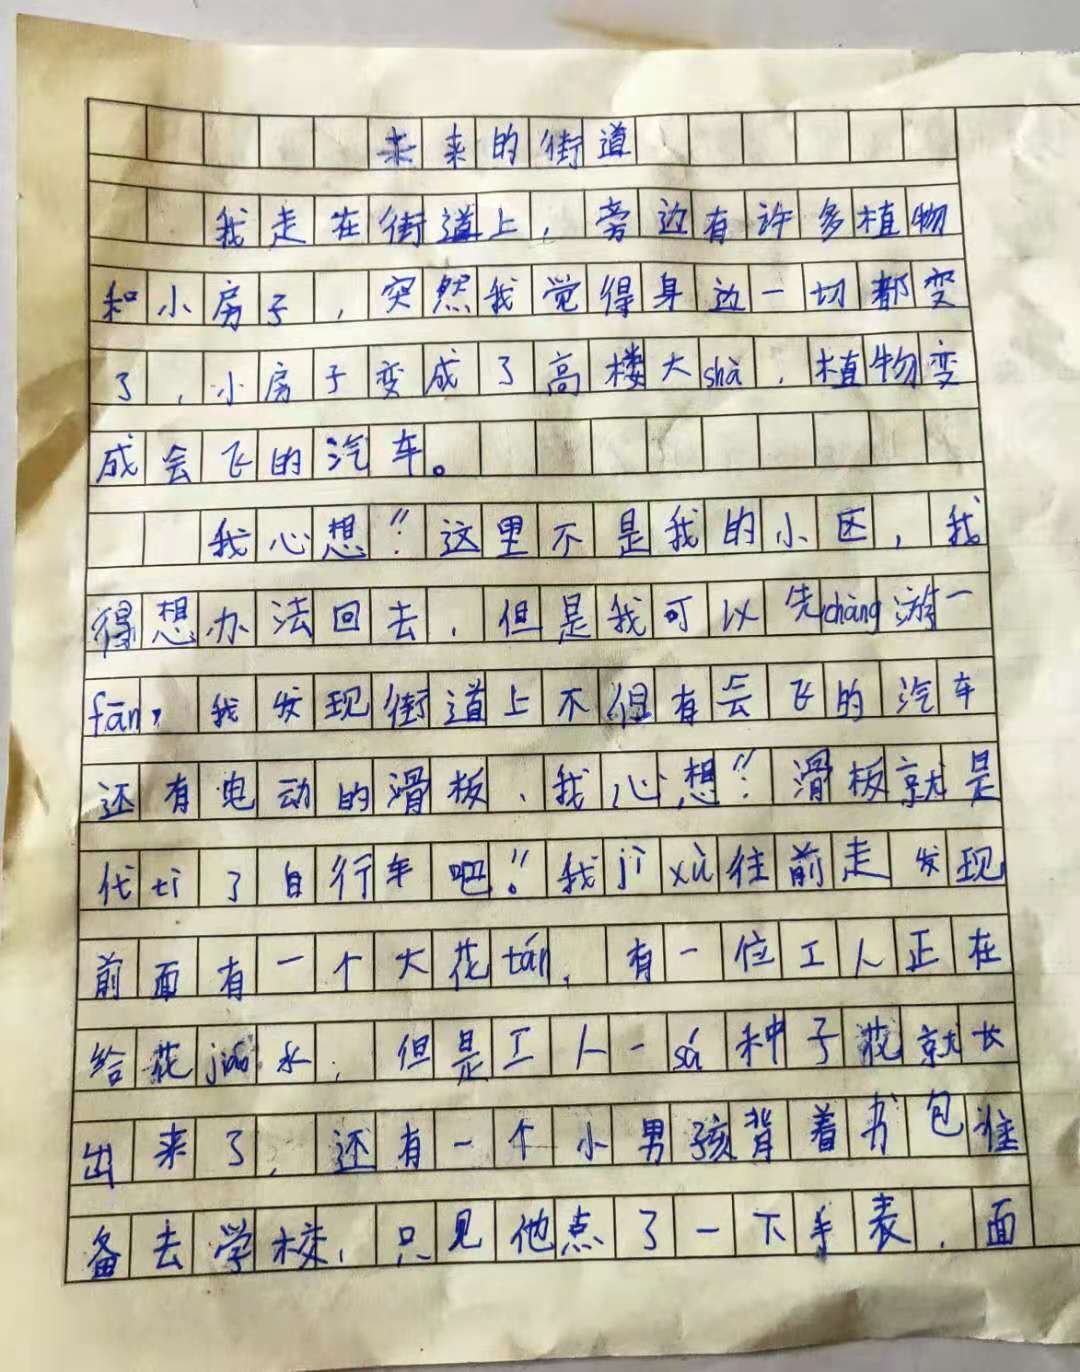 未来的街道
我走在街道上，旁边有许多植物
和小房子，突然我觉得身边一切都变
了，小房子变成了高楼大shà，植物变
成会飞的汽车。
我心想：“这里不是我的小区，我
得想办法回去，但是我可以先chàng游一
fān，我发现街道上不但有会飞的汽车
还有电动的滑板、我心想：“滑板就是
代tì了自行车吧！”我jì xù往前走发现
前面有一个大花tán，有一位工人正在
给花jiāo水，但是工人一sá种子花就长
出来了，还有一个小男孩背着书包准
备去学校，只见他点了一下手表，面